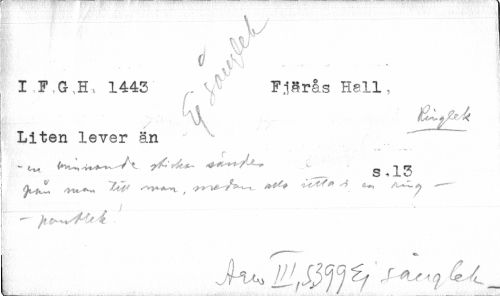 Ej sånglek
I.F.G.H. 1443 Fjärås Hall,
Ringlek
Liten lever än
- en brinnande sticka sändes s.13
från man till man, medan alla sitta i en ring -
- pantlek!
Arw III, S399 Ej sånglek